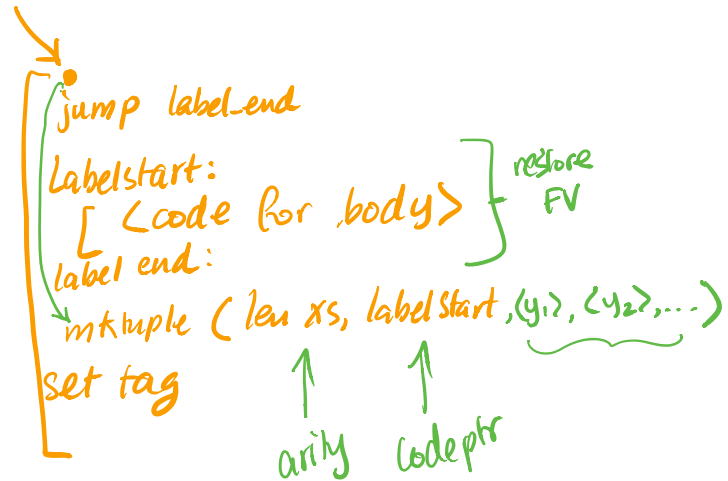 jump label_end
Labelstart:
<code for body>
restore
FV
label end:
mktuple (len xs, labelstart, <y1>, <y2>, ...)
set tag
arity
codeptr